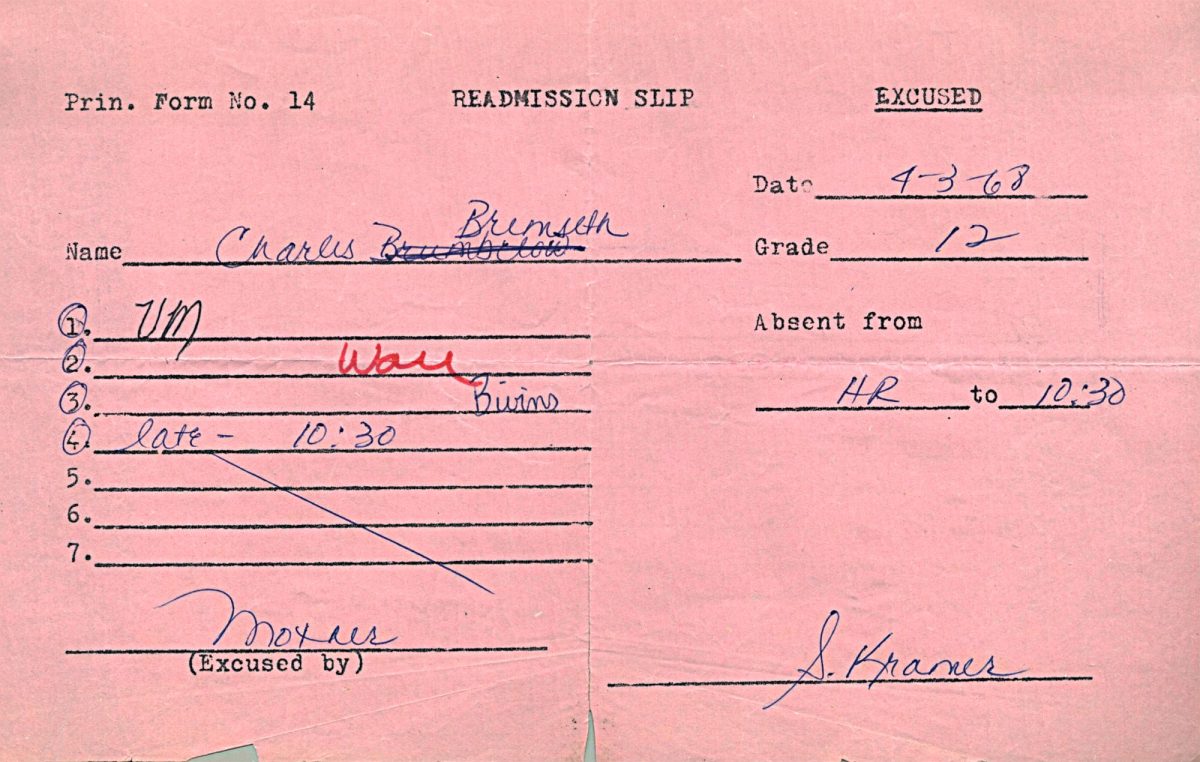 Prin. Form No. 14 READMISSION SLIP EXCUSED
Date 4-3-68
Bremseth
Name Charles Brumbelow
Grade 12
1. VM
Absent from
2. Wall
3. Bivins
HR to 10:30
4. late - 10:30
5.
6.
7.
(Excused by)
S. Kramer